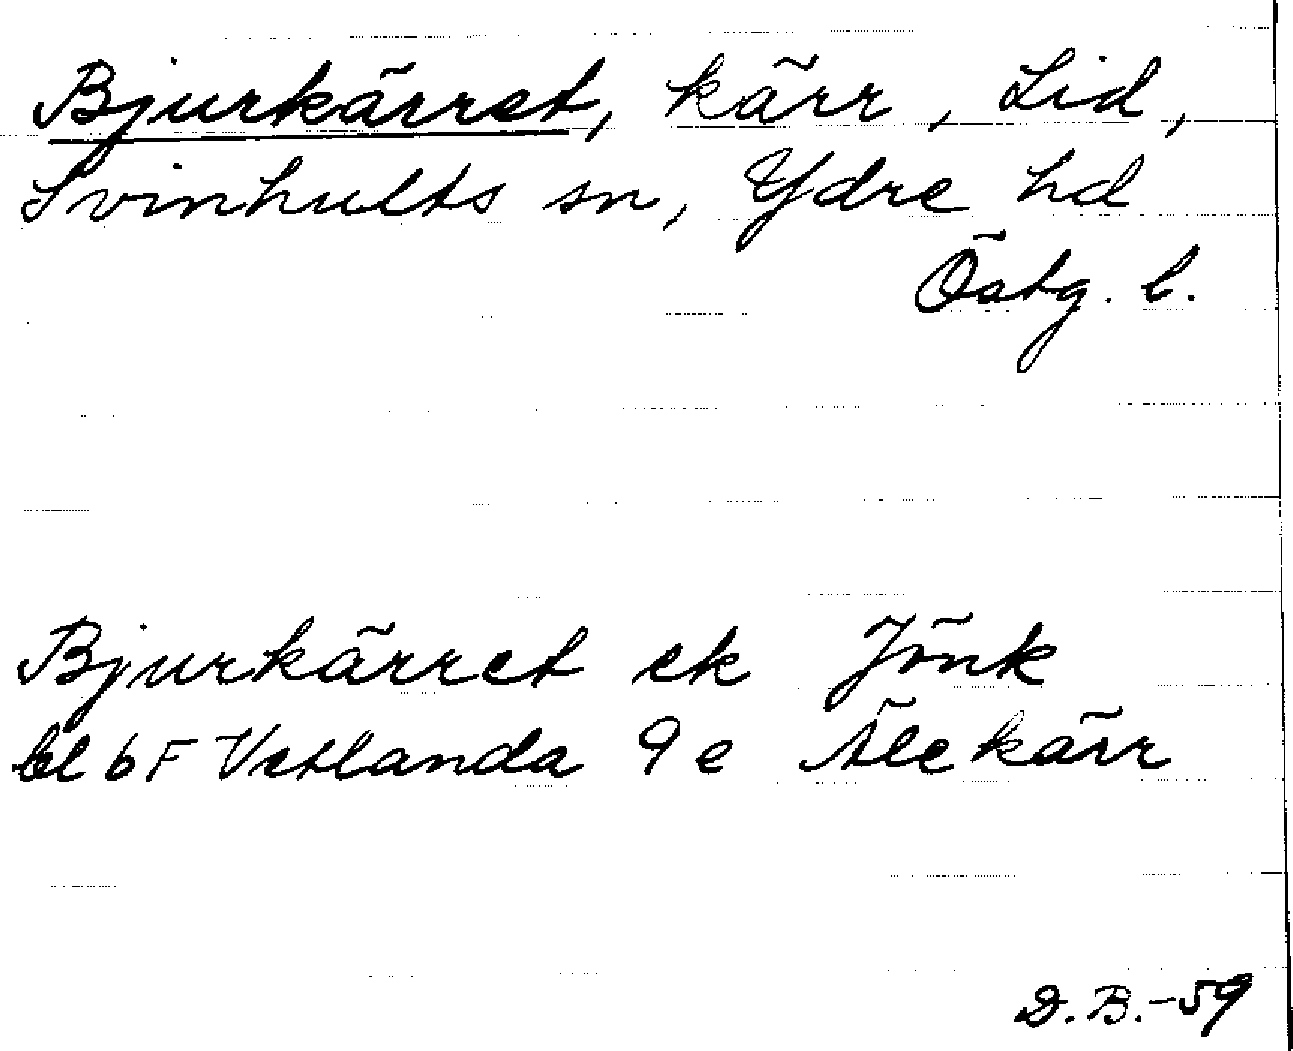 Bjurkärret, kärr, Lid,
Svinhults sn, Ydre hd
Östg. l.
Bjurkärret ek Jönk
bl 6 F Vetlanda 9 e Älekärr
D. B. -59